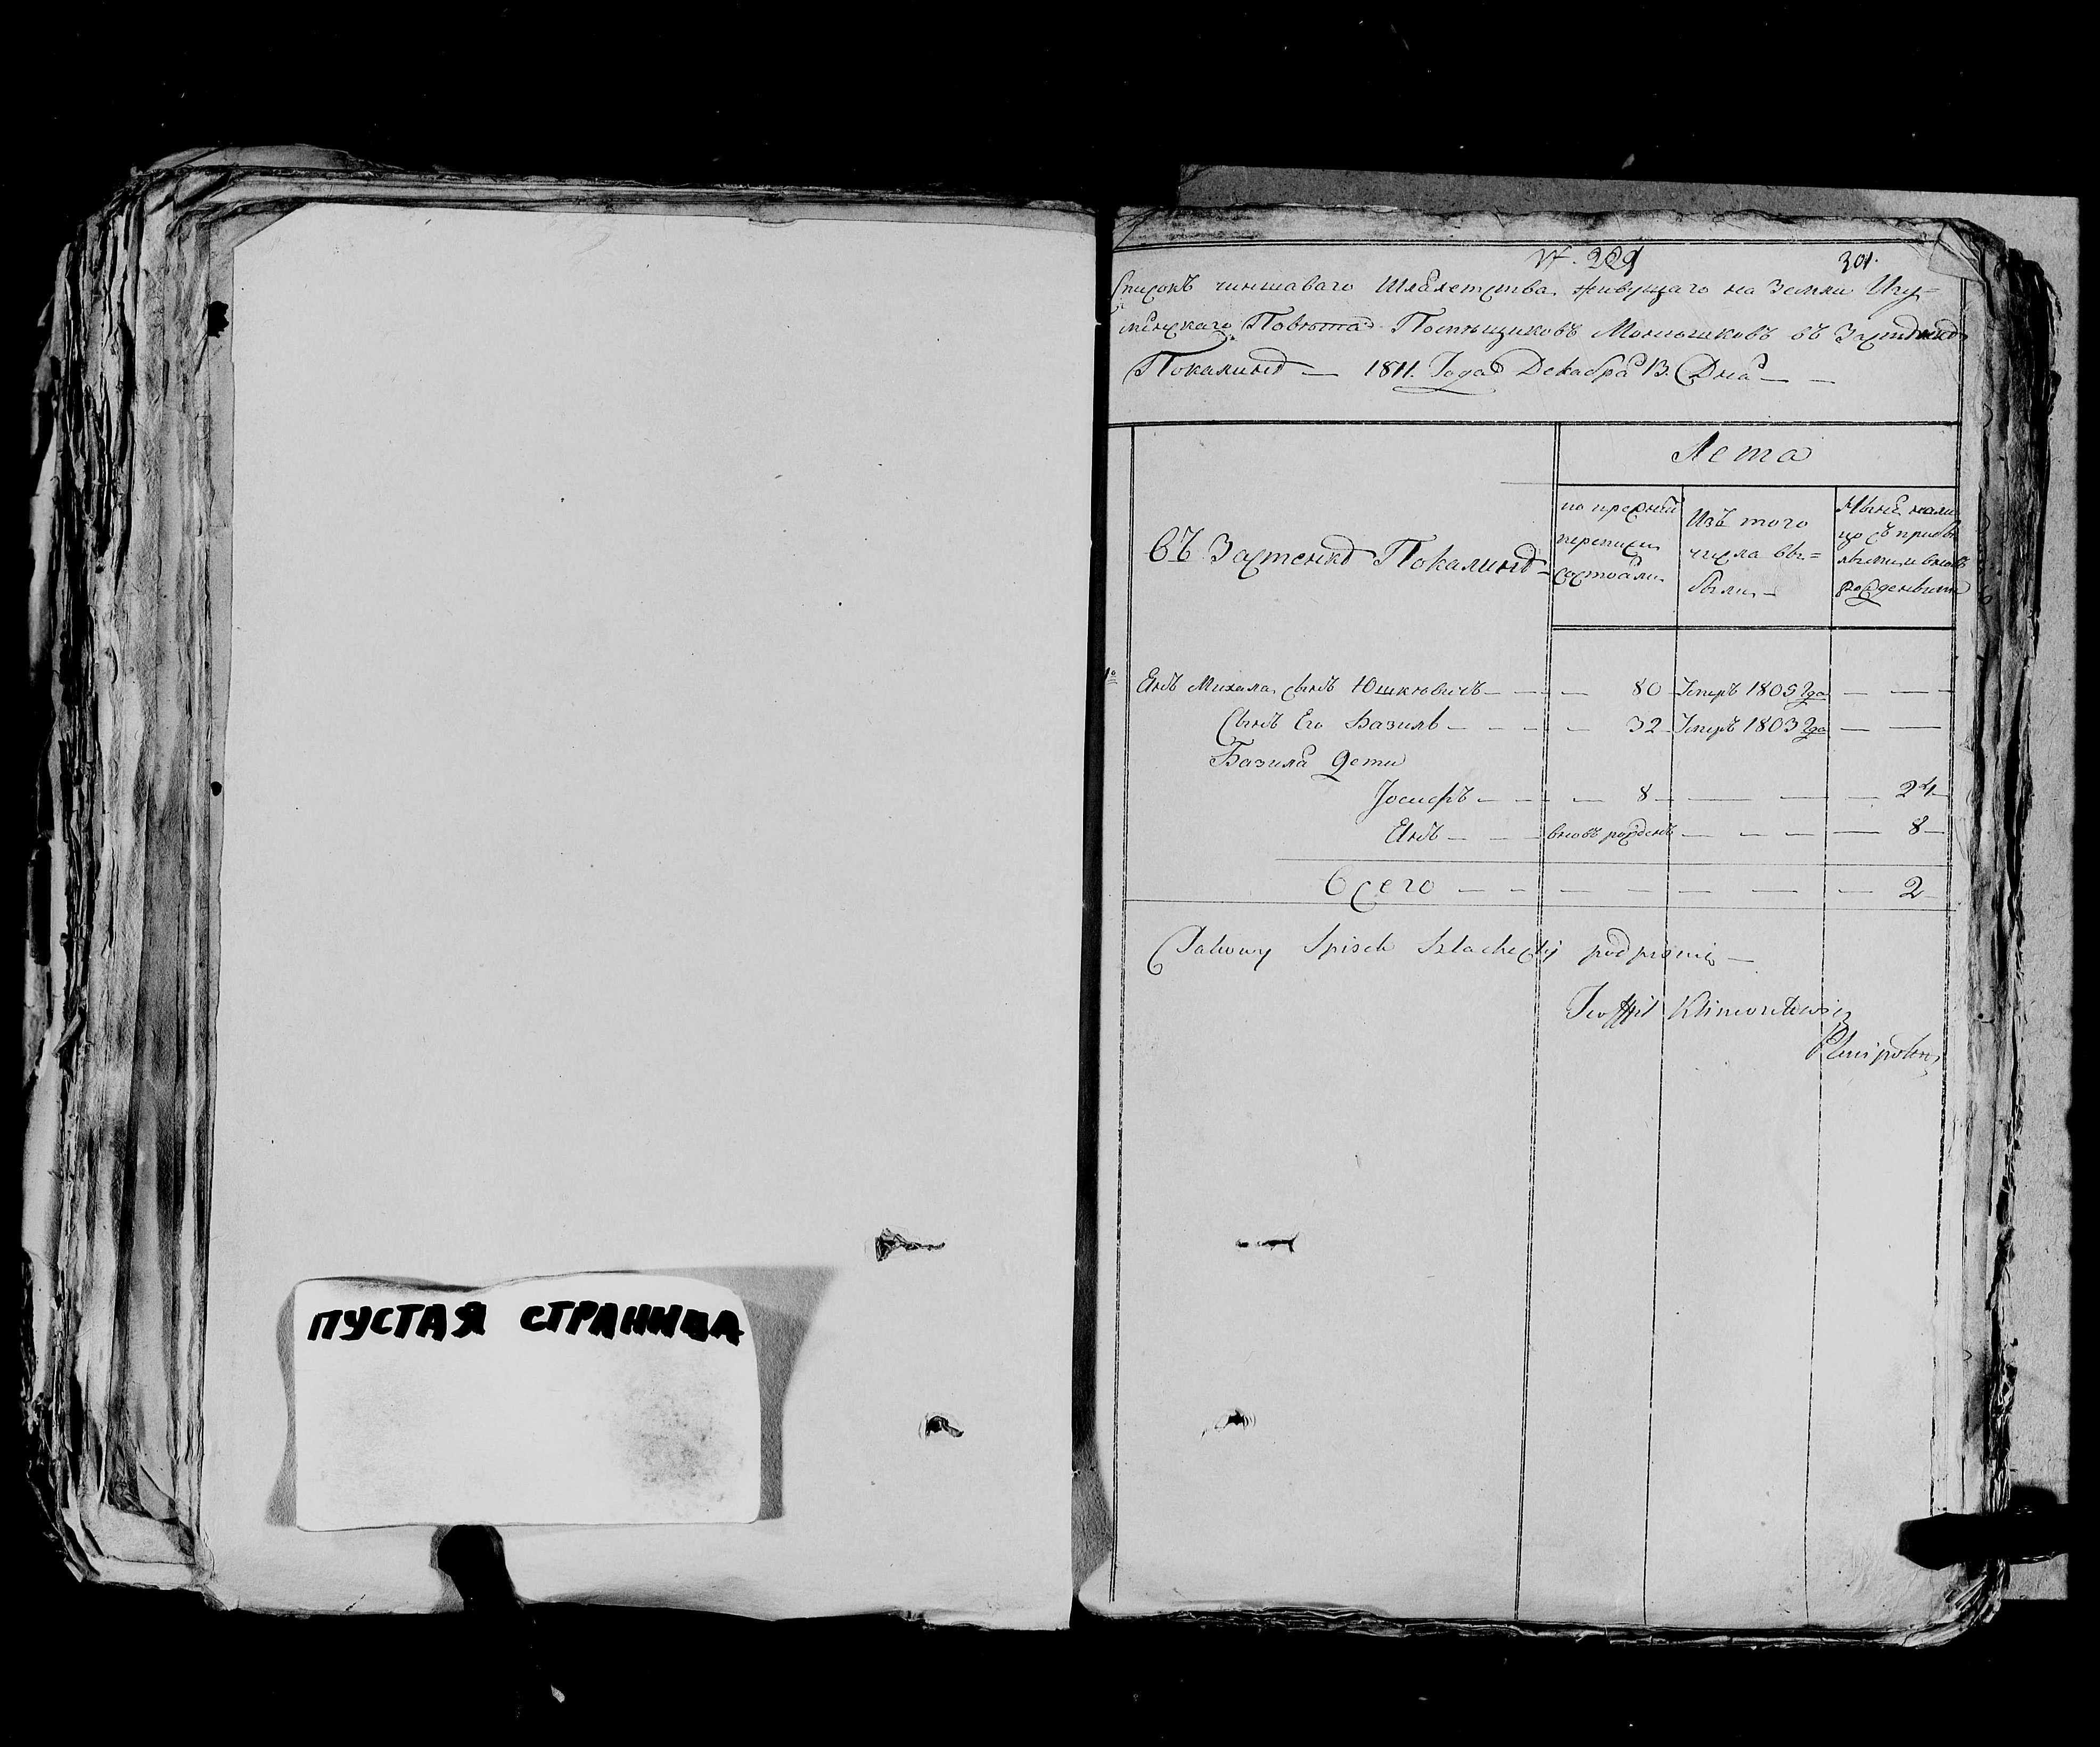 ПУСТАЯ СТРАНИЦА
301.
Списокъ чиншаваго Шляхетства живущаго на Земли Игу=
менскаго Повета Помѣщиковъ въ
1811. Года Декабра 13. Дна
Лета
въ Застенке Покалине
по прежней
переписи
состояли
Изъ того
числа вы=
были
Ныне нали
цо съ прибы
лыми и вновь
рожденными
1º Янъ Михала Сынъ Юшкевичъ — 80 Умеръ 1805 Года — —
Сынъ Его Базиль — 32 Умеръ 1803 Года — —
Базила Дети
Іосифъ — — 8 — — 24
Янъ — — вновь рожденъ — — 8
Всего — — — — 2
Takowy Spisek Szlachecki podpisuię —
Teoffil Klimontowicz
Plenipotent